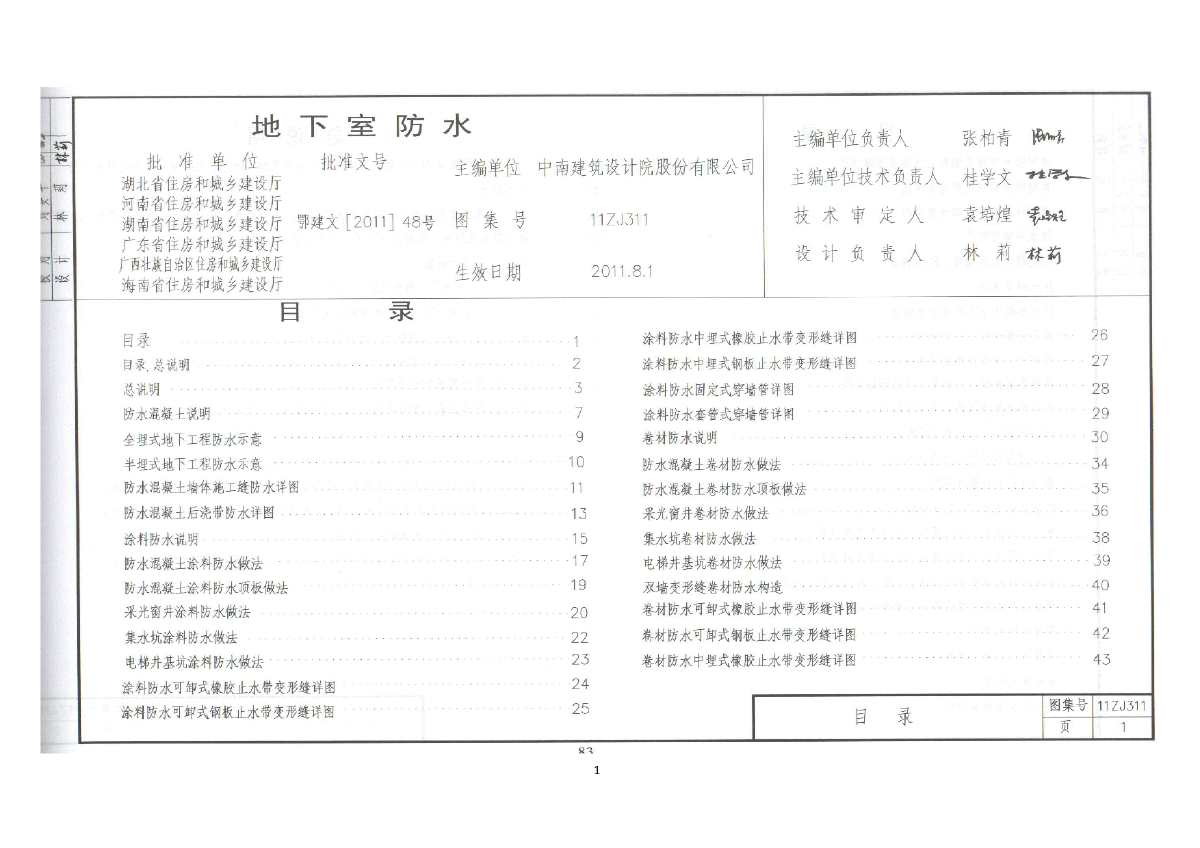 地下室防水
批准单位 批准文号
湖北省住房和城乡建设厅
河南省住房和城乡建设厅
湖南省住房和城乡建设厅 鄂建文[2011]48号
广东省住房和城乡建设厅
广西壮族自治区住房和城乡建设厅
海南省住房和城乡建设厅
主编单位 中南建筑设计院股份有限公司
图集号 11ZJ311
生效日期 2011.8.1
主编单位负责人 张柏青
主编单位技术负责人 桂学文
技术审定人 袁培煌
设计负责人 林莉 林莉
目录
目录 1
目录,总说明 2
总说明 3
防水混凝土说明 7
全埋式地下工程防水示意 9
半埋式地下工程防水示意 10
防水混凝土墙体施工缝防水详图 11
防水混凝土后浇带防水详图 13
涂料防水说明 15
防水混凝土涂料防水做法 17
防水混凝土涂料防水顶板做法 19
采光窗井涂料防水做法 20
集水坑涂料防水做法 22
电梯井基坑涂料防水做法 23
涂料防水可卸式橡胶止水带变形缝详图 24
涂料防水可卸式钢板止水带变形缝详图 25
涂料防水中埋式橡胶止水带变形缝详图 26
涂料防水中埋式钢板止水带变形缝详图 27
涂料防水固定式穿墙管详图 28
涂料防水套管式穿墙管详图 29
卷材防水说明 30
防水混凝土卷材防水做法 34
防水混凝土卷材防水顶板做法 35
采光窗井卷材防水做法 36
集水坑卷材防水做法 38
电梯井基坑卷材防水做法 39
双墙变形缝卷材防水构造 40
卷材防水可卸式橡胶止水带变形缝详图 41
卷材防水可卸式钢板止水带变形缝详图 42
卷材防水中埋式橡胶止水带变形缝详图 43
目录 图集号 11ZJ311
页 1
83
1